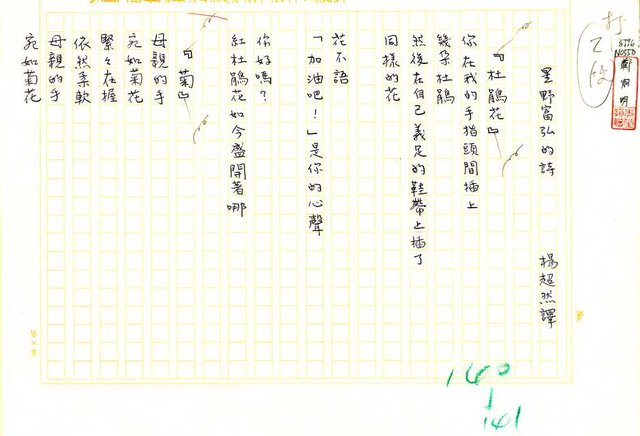 星野富弘的詩
楊超然譯
『杜鵑花』
你在我的手指頭間插上
幾朵杜鵑
然後在自己義足的鞋帶上插了
同樣的花
花不語
「加油吧！」是你的心聲
你好嗎？
紅杜鵑花如今盛開著哪
『菊』
母親的手
宛如菊花
緊々在握
依然柔軟
母親的手
宛如菊花
140
141